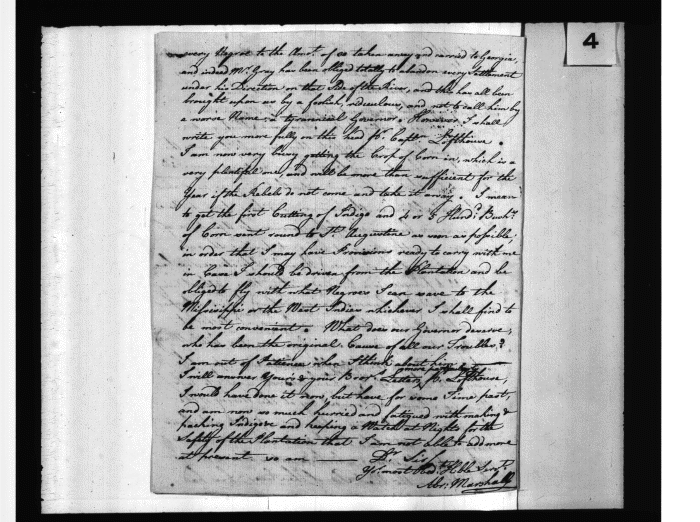 4
every Negroe to the Amot. of 30 taken away and carried to Georgia,
and indeed Mr. Gray has been obliged totally to abandon every Settlement
under his Direction on that Side of the River, and this has all been
brought upon us by a foolish, ridiculous, and not to call him by
a worse Name a tyrannical Governor. However I shall
write you more fully on this head pr. Captn. Lofthouse.
I am now very busy getting the Crop of Corn in, which is a
very plentiful one, and will be more than sufficient for the
Year if the Rebels do not come and take it away. I mean
to get the first Cutting of Indigo and 4 or 5 Hundd. Bushs.
of Corn sent round to St. Augustine as soon as possible,
in order that I may have Provisions ready to carry with me
in Case I should be driven from the Plantation and be
obliged to fly with what Negroes I can save to the
Mississippi or the West Indies whichever I shall find to
be most convenient. What does our Governor deserve,
who has been the original Cause of all our Troubles?
I am out of Patience when I think about him
I will answer Yours & your Letters more particularly pr. Lofthouse,
I would have done it now, but have for some Time past,
and am now so much hurried and fatigued with making &
packing Indigoe and keeping a Watch at Nights for the
Safety of the Plantation that I am not able to add more
at present so am Dr. Sir
Yr. most Obedt. Hble Servt.
Abr: Marshall